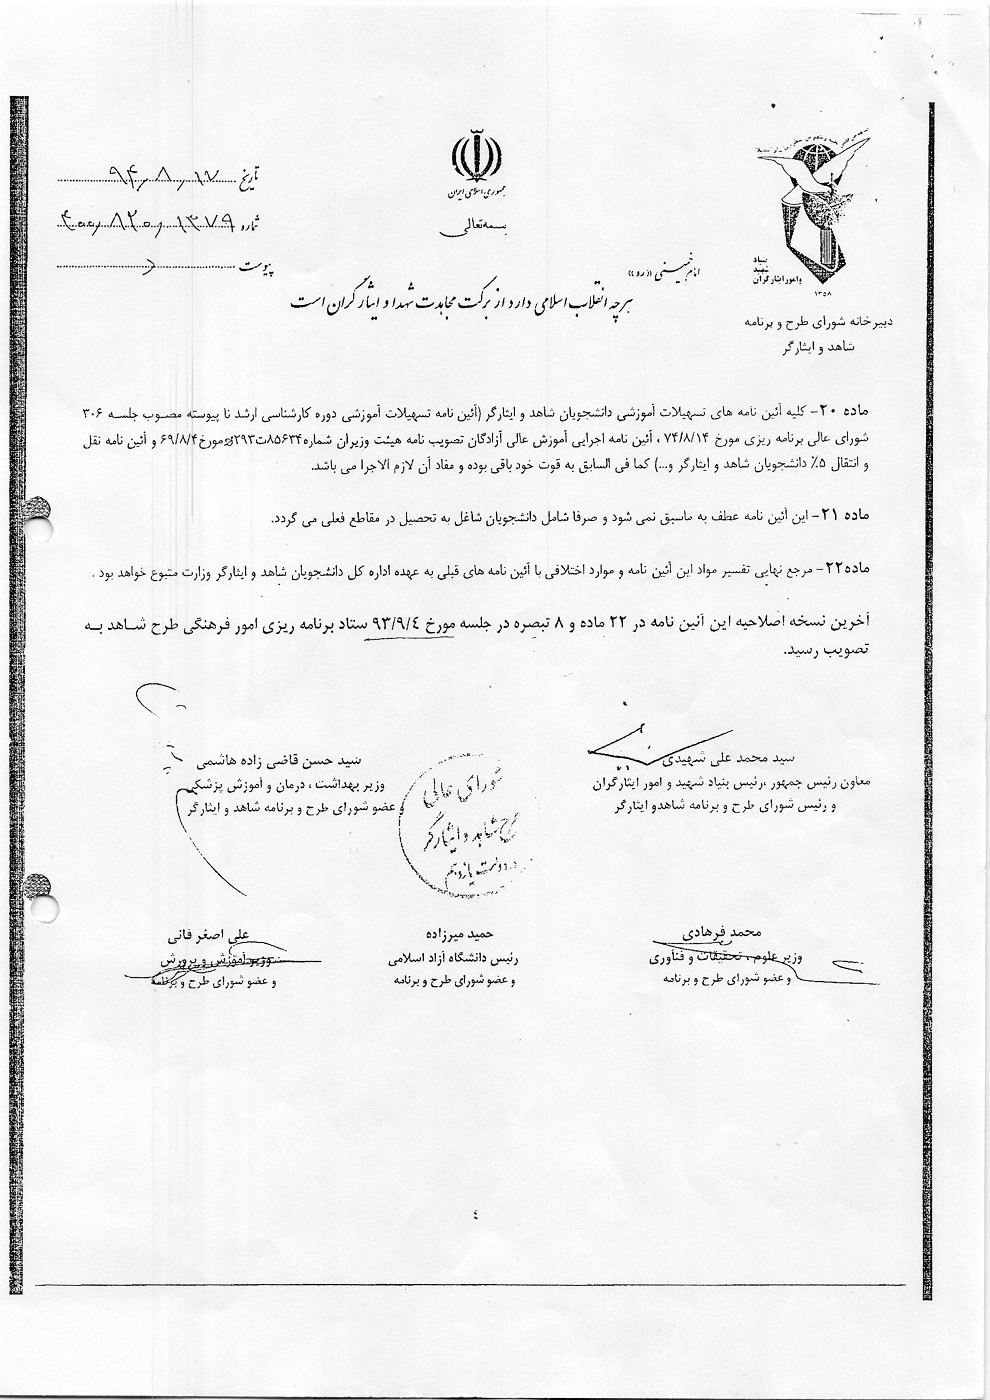 جمهوری اسلامی ایران
بسمه تعالی
تاریخ ۹۴/۸/۱۷
شماره ۴۰۰/۸۲۰/۱۳۷۹
پیوست
بنیاد
شهید
و امور ایثارگران
۱۳۵۸
دبیرخانه شورای طرح و برنامه
شاهد و ایثارگر
امام خمینی «ره»
هر چه انقلاب اسلامی دارد از برکت مجاهدت شهدا و ایثارگران است
ماده ۲۰- کلیه آئین نامه های تسهیلات آموزشی دانشجویان شاهد و ایثارگر (آئین نامه تسهیلات آموزشی دوره کارشناسی ارشد نا پیوسته مصوب جلسه ۳۰۶
شورای عالی برنامه ریزی مورخ ۷۴/۸/۱۴ ، آئین نامه اجرایی آموزش عالی آزادگان تصویب نامه هیئت وزیران شماره۸۵۶۳۴ت۲۹۳ مورخ۶۹/۸/۴ و آئین نامه نقل
و انتقال ۵٪ دانشجویان شاهد و ایثارگر و...) کما فی السابق به قوت خود باقی بوده و مفاد آن لازم الاجرا می باشد.
ماده ۲۱- این آئین نامه عطف به ماسبق نمی شود و صرفا شامل دانشجویان شاغل به تحصیل در مقاطع فعلی می گردد.
ماده۲۲- مرجع نهایی تفسیر مواد این آئین نامه و موارد اختلافی با آئین نامه های قبلی به عهده اداره کل دانشجویان شاهد و ایثارگر وزارت متبوع خواهد بود .
آخرین نسخه اصلاحیه این آئین نامه در ۲۲ ماده و ۸ تبصره در جلسه مورخ ۹۳/۹/٤ ستاد برنامه ریزی امور فرهنگی طرح شاهد به
تصویب رسید.
سید محمد علی شهیدی
معاون رئیس جمهور ،رئیس بنیاد شهید و امور ایثارگران
و رئیس شورای طرح و برنامه شاهدو ایثارگر
سید حسن قاضی زاده هاشمی
وزیر بهداشت ، درمان و آموزش پزشکی
و عضو شورای طرح و برنامه شاهد و ایثارگر
شورای عالی
طرح شاهد و ایثارگر
در دولت یازدهم
محمد فرهادی
وزیر علوم ، تحقیقات و فناوری
و عضو شورای طرح و برنامه
حمید میرزاده
رئیس دانشگاه آزاد اسلامی
و عضو شورای طرح و برنامه
علی اصغر فانی
وزیر آموزش و پرورش
و عضو شورای طرح و برنامه
٤